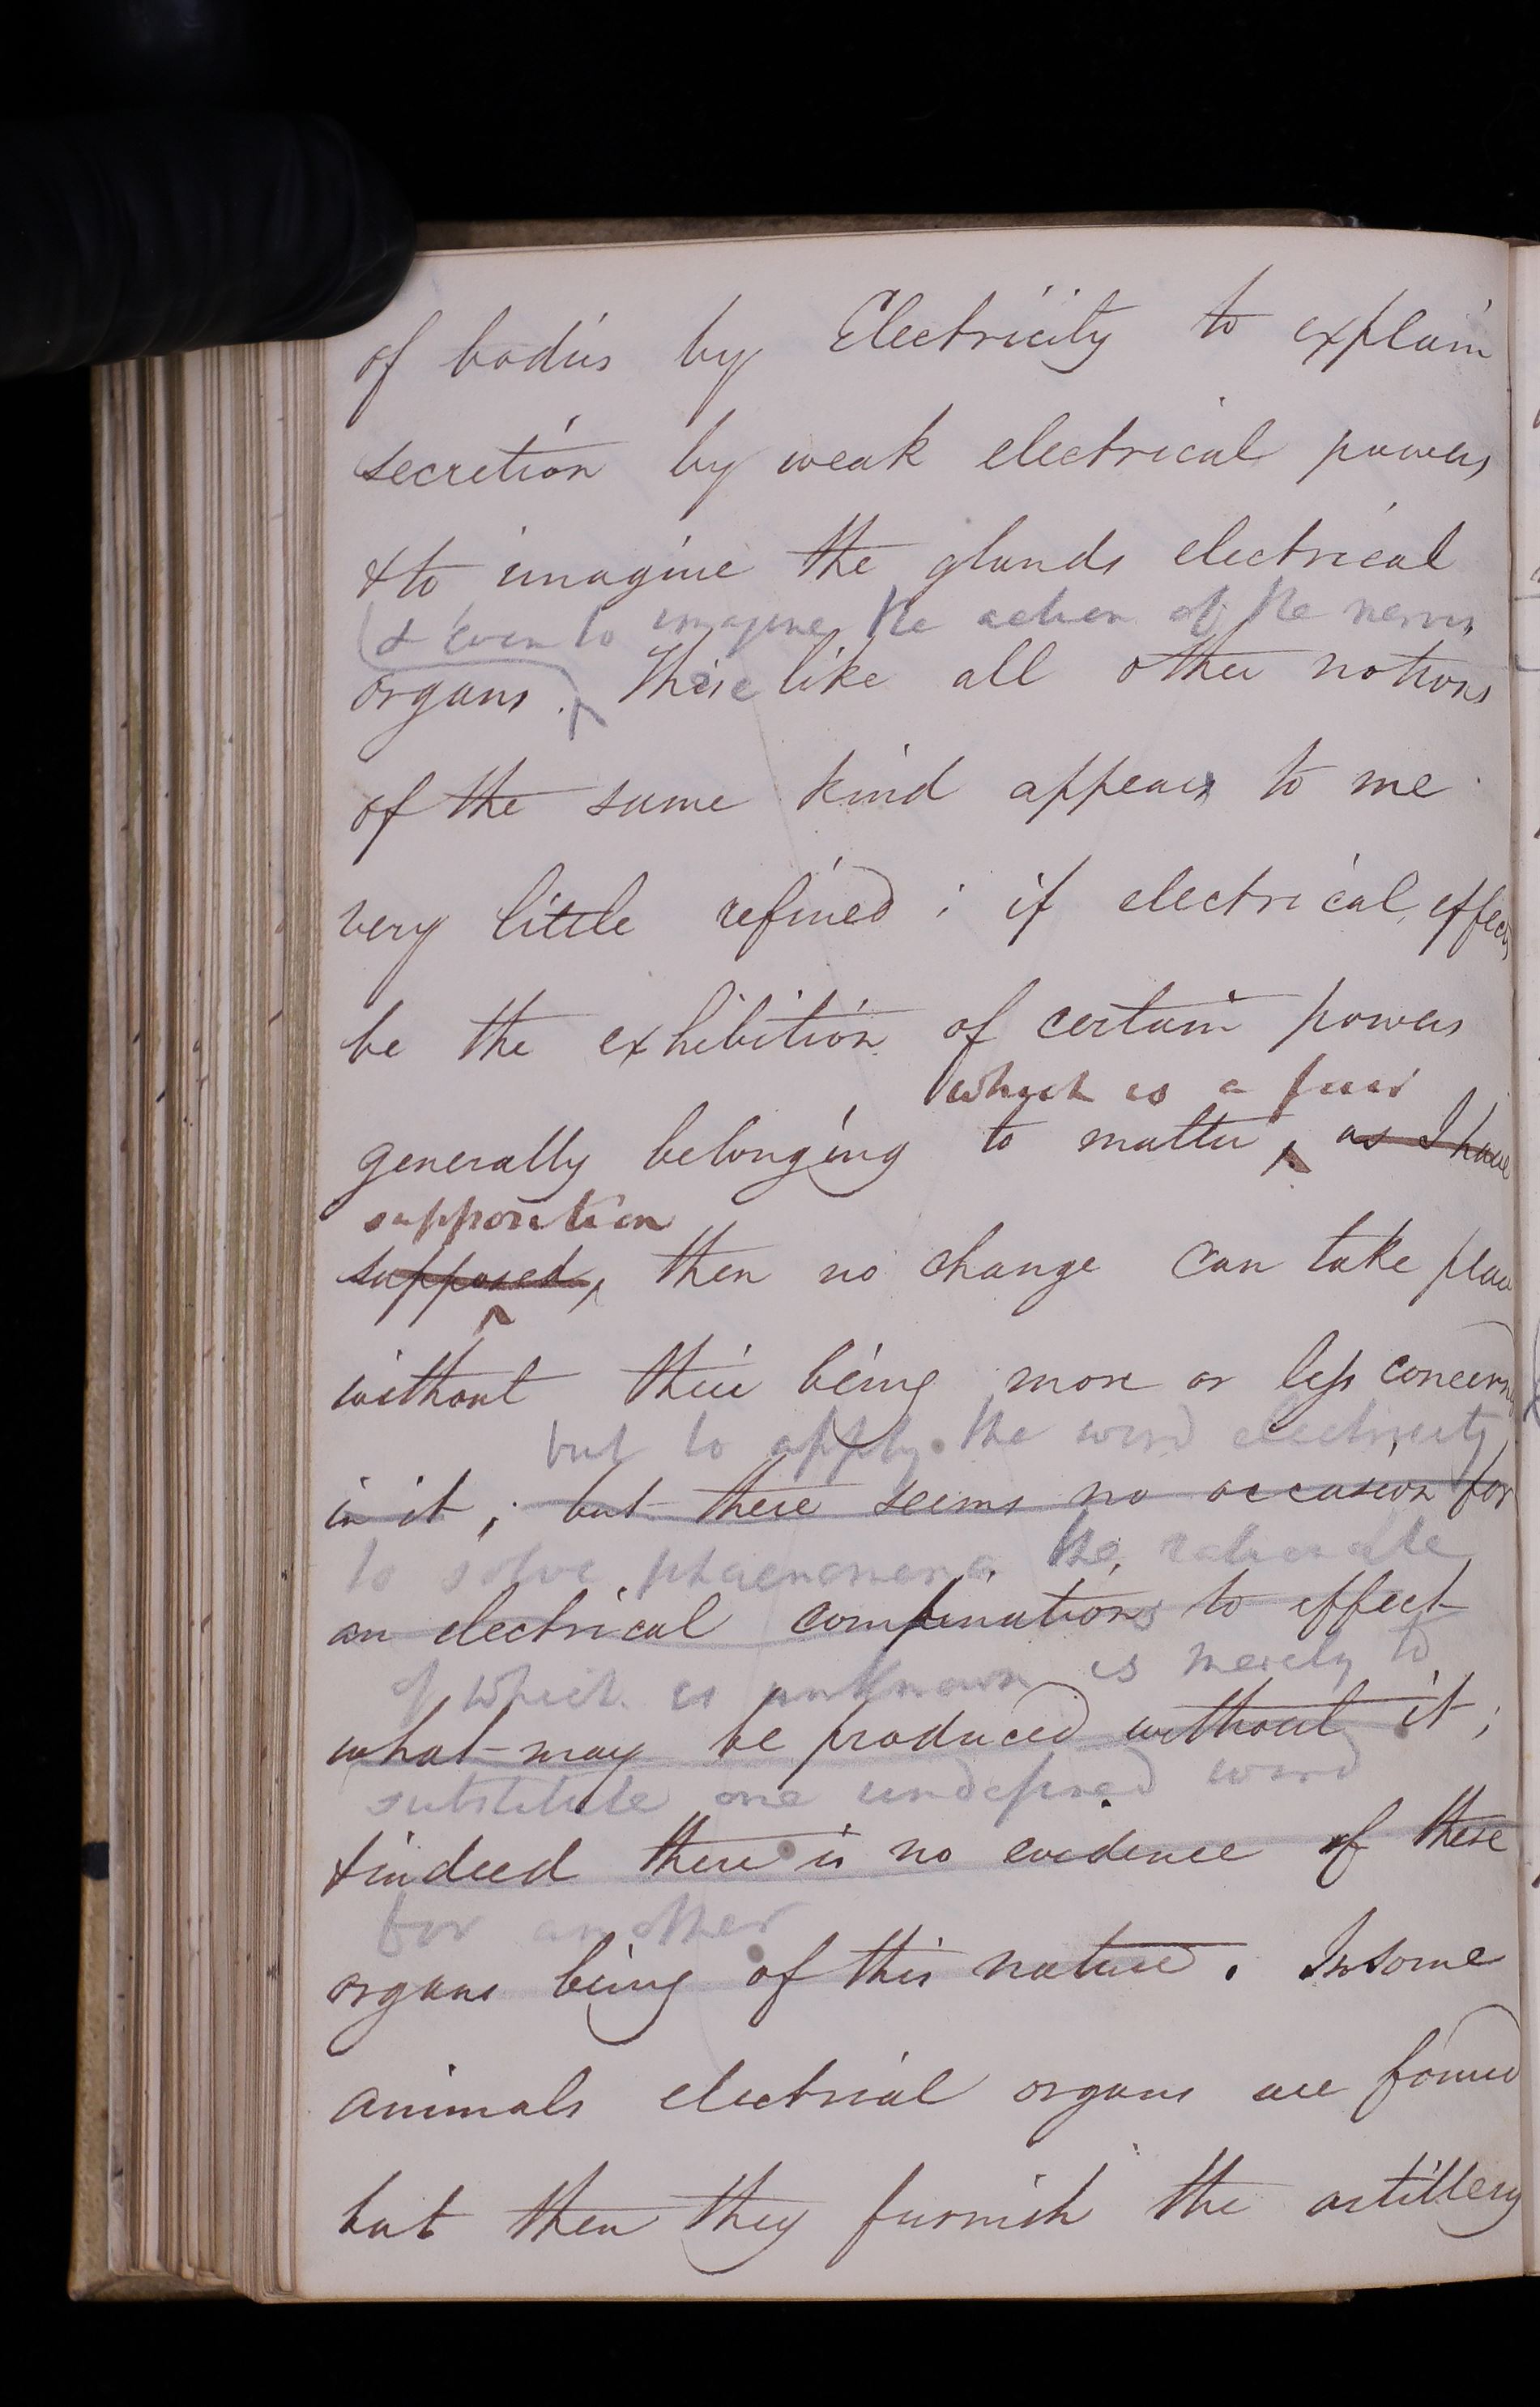 of bodies by Electricity to explain
secretion by weak electrical powers
& to imagine the glands electrical
& even to imagine the action of the nerves
organs. These like all other notions
of the same kind appear to me
very little refined; if electrical effects
be the exhibition of certain powers
which is a fair
generally belonging to matter, as I have
supposition
supposed, then no change can take place
without their being more or less concerned
but to apply the word electricity
in it; but there seems no occasion for
to solve phaenomena the rationale
an electrical combinations to effect
of which is unknown is merely to
what may be produced without it;
substitute one undefined word
& indeed there is no evidence of these
for another
organs being of this nature. In some
animals electrial organs are found
but then they furnish the artillery